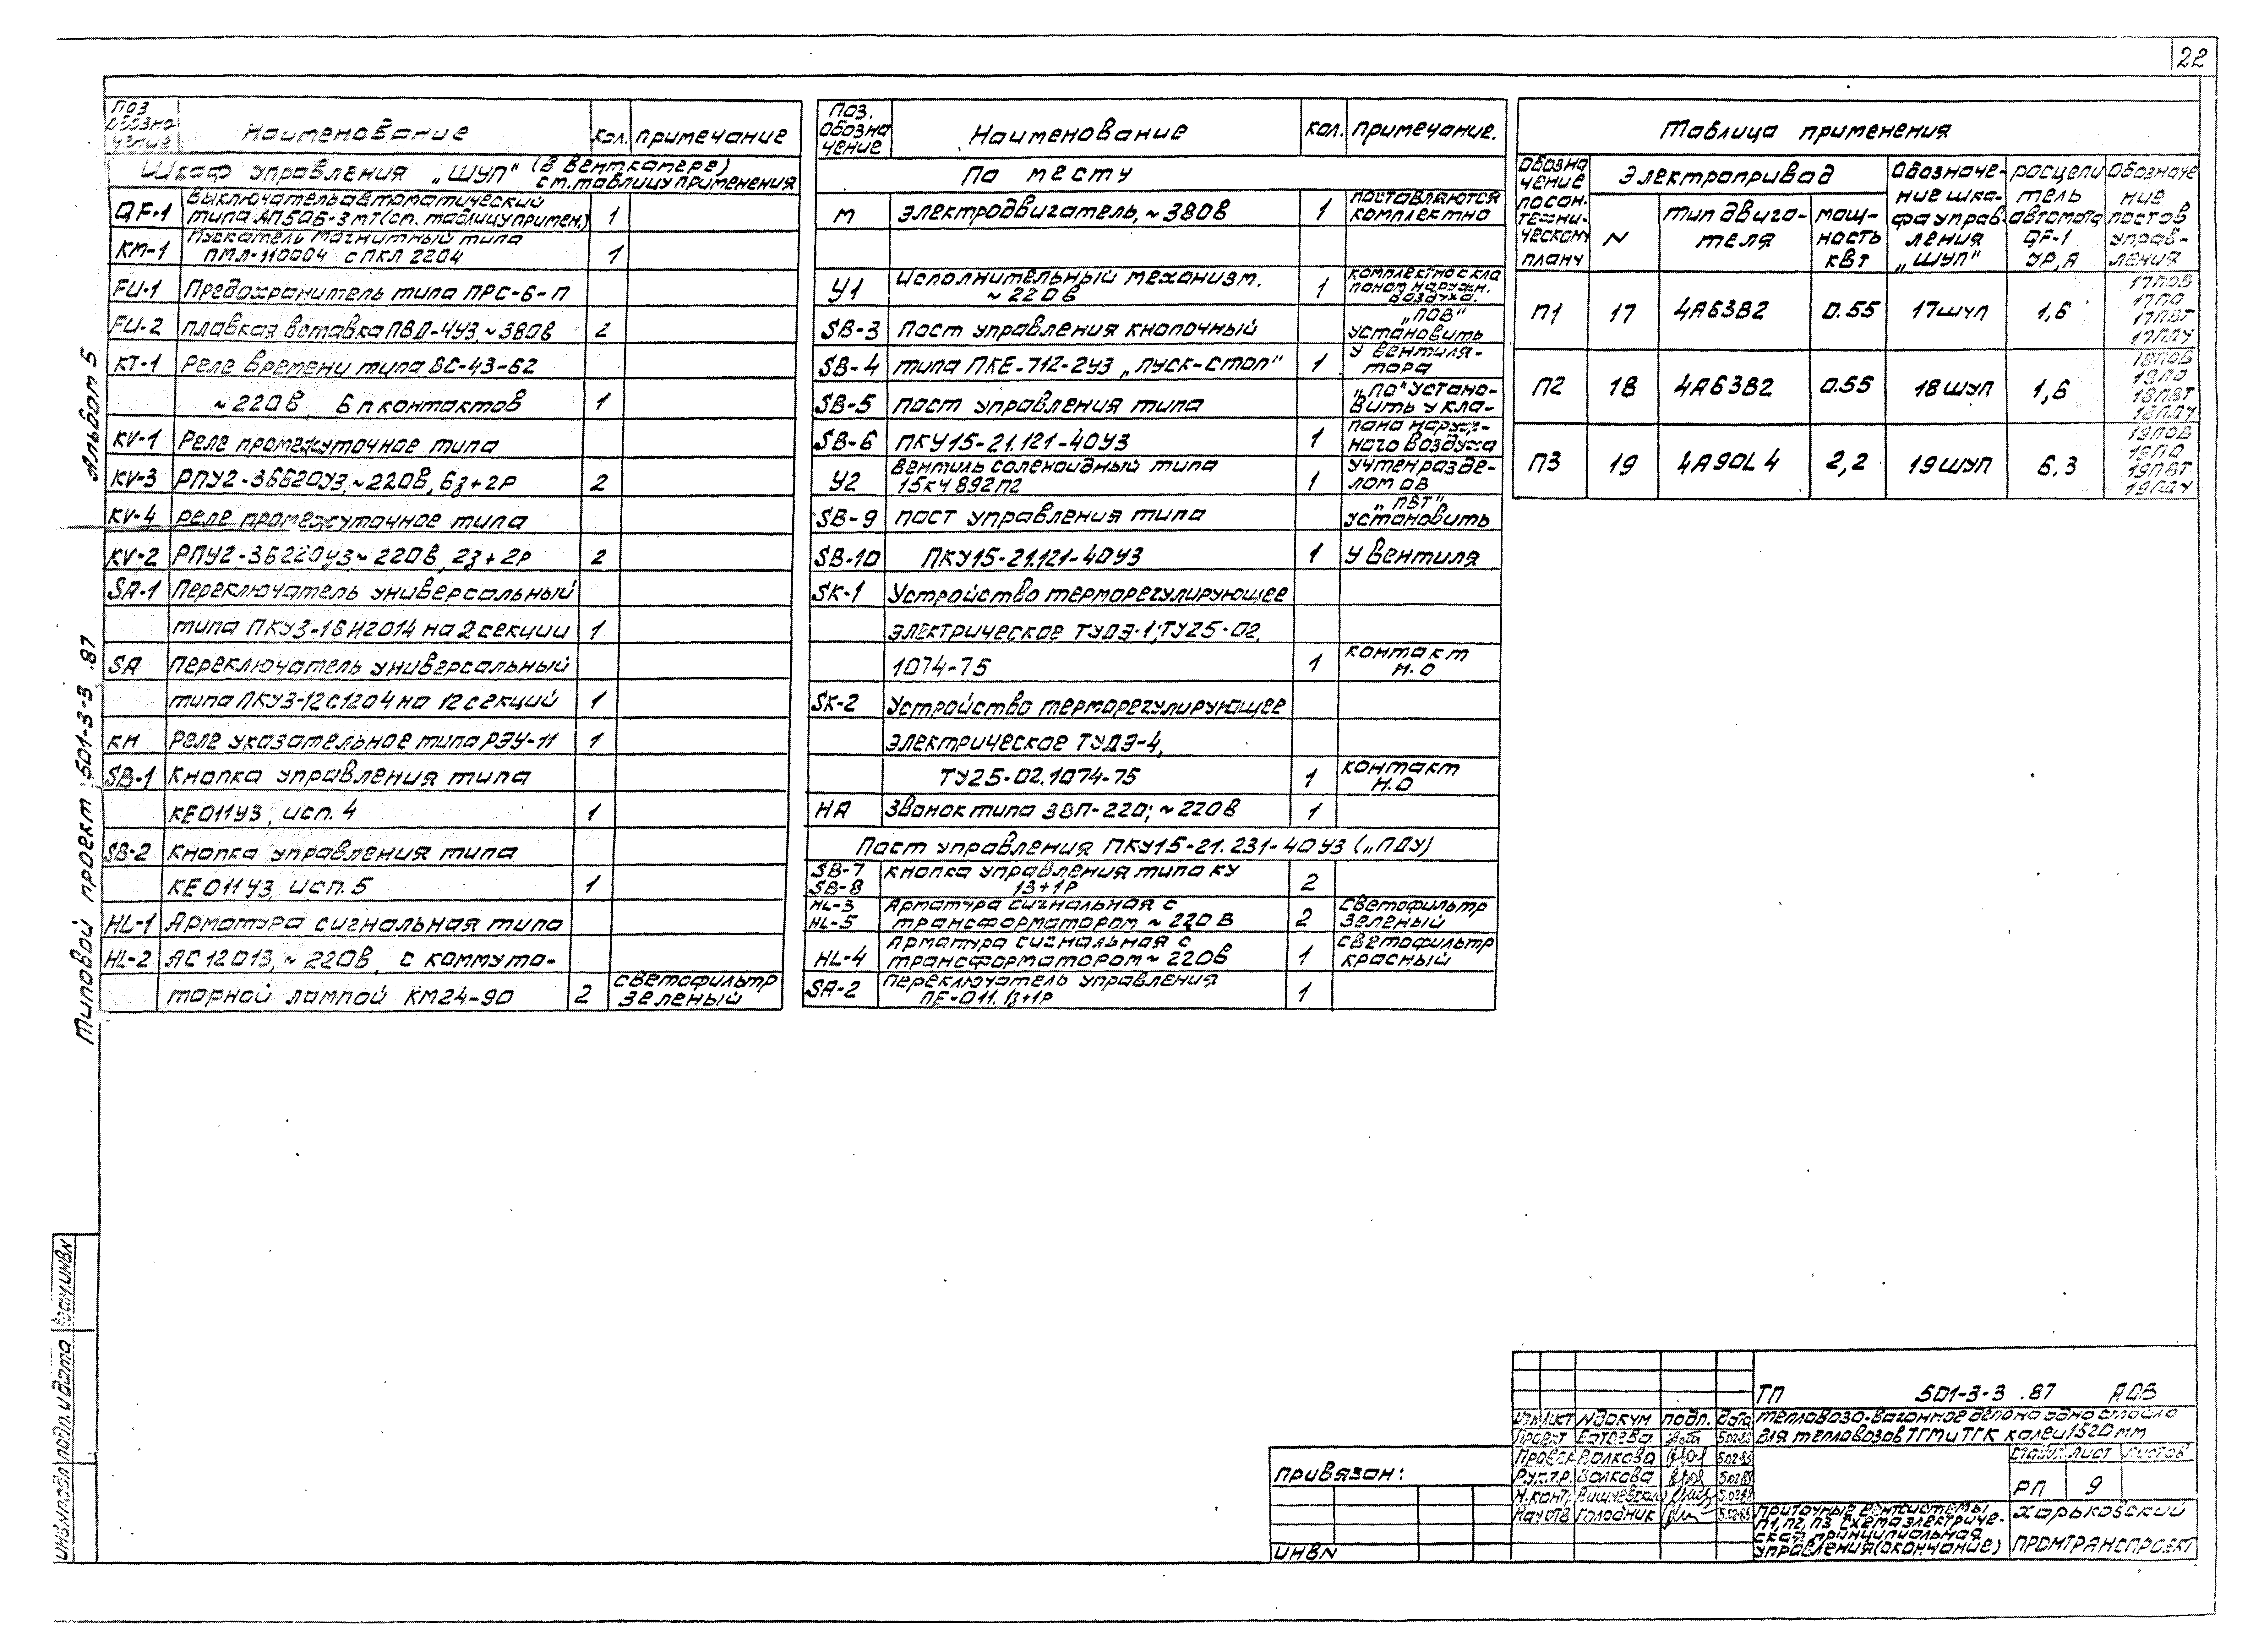 22
Поз. обозначение Наименование Кол. Примечание
Шкаф управления „ШУП" (в венткамере)
см. таблицу применения
QF-1 Выключатель автоматический
типа АП50Б-3МТ (см. таблицу примен.) 1
КМ-1 Пускатель магнитный типа
ПМЛ-110004 с ПКЛ 2204 1
FU-1 Предохранитель типа ПРС-6-П
FU-2 плавкая вставка ПВД-4У3, ~380в 2
КТ-1 Реле времени типа ВС-43-62
~220в, 6п контактов 1
KV-1 Реле промежуточное типа
KV-3 РПУ2-36620У3, ~220в, 6з+2р 2
KV-4 реле промежуточное типа
KV-2 РПУ2-36220У3, ~220в, 2з+2р 2
SA-1 Переключатель универсальный
типа ПКУ3-16И2014 на 2 секции 1
SA Переключатель универсальный
типа ПКУ3-12С1204 на 12 секций 1
КН Реле указательное типа РЭУ-11 1
SB-1 Кнопка управления типа
КЕ011У3, исп. 4 1
SB-2 Кнопка управления типа
КЕ011У3, исп. 5 1
HL-1 Арматура сигнальная типа
HL-2 АС12013, ~220в, с коммута-
торной лампой КМ24-90 2 светофильтр зеленый
Поз. обозна чение Наименование Кол. Примечание.
По месту
М Электродвигатель, ~380в 1 поставляются комплектно
У1 Исполнительный механизм.
~220в 1 комплектно с кла паном наружн. воздуха.
SB-3 Пост управления кнопочный „ПОВ" установить
SB-4 типа ПКЕ-712-2У3 „Пуск-стоп" 1 у вентиля- тора
SB-5 пост управления типа „ПО" устано- вить у кла-
SB-6 ПКУ15-21.121-40У3 1 пана наруж- ного воздуха
У2 Вентиль соленоидный типа
15кч 892п2 1 учтен разде- лом ОВ
SB-9 пост управления типа „ПВТ", установить
SB-10 ПКУ15-21.121-40У3 1 у вентиля
SK-1 Устройство терморегулирующее
электрическое ТУДЭ-1; ТУ25-02.
1074-75 1 контакт Н.О
SK-2 Устройство терморегулирующее
электрическое ТУДЭ-4,
ТУ25-02.1074-75 1 контакт Н.О
НА Звонок типа ЗВП-220; ~220в 1
Пост управления ПКУ15-21.231-40У3 („ПДУ)
SB-7 SB-8 кнопка управления типа КУ
1з+1р 2
HL-3 HL-5 Арматура сигнальная с
трансформатором ~220в 2 светофильтр зеленый
HL-4 Арматура сигнальная с
трансформатором ~220в 1 светофильтр красный
SA-2 переключатель управления
ПЕ-011. 1з+1р 1
Таблица применения
Обозна чение по сан. техни- ческому плану Электропривод Обозначе- ние шка- фа управ- ления „ШУП" расцепи тель автомата QF-1 УР, А Обозначе ние постов управ- ления
N тип двига- теля мощ- ность кВт
П1 17 4А63В2 0.55 17шуп 1,6 17ПОВ 17ПО 17ПВТ 17ПДУ
П2 18 4А63В2 0.55 18шуп 1,6 18ПОВ 18ПО 18ПВТ 18ПДУ
П3 19 4А90L4 2,2 19шуп 6.3 19ПОВ 19ПО 19ПВТ 19ПДУ
Альбом 5
Типовой проект 501-3-3 .87
Инв.N подл Подп. и дата Взам.инвN
Привязан:
ИНВN
ТП 501-3-3 .87 АОВ
Изм Лист N докум подп. дата
Тепловозо-вагонное депо на одно стойло
для тепловозов ТГМ и ТГК колеи 1520 мм
Провер Волкова
Рук.гр. Волкова
Н.конт.
Нач отв Голодник
Стадия Лист Листов
РП 9
Приточные вентсистемы
П1, П2, П3. Схема электриче-
ская принципиальная
управления (окончание)
Харьковский
ПРОМТРАНСПРОЕКТ